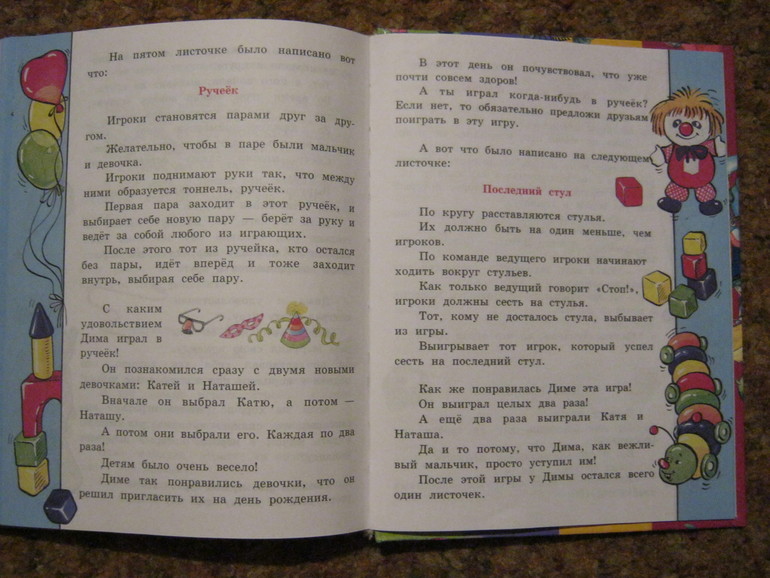 На пятом листочке было написано вот
что:
Ручеёк
Игроки становятся парами друг за дру-
гом.
Желательно, чтобы в паре были мальчик
и девочка.
Игроки поднимают руки так, что между
ними образуется тоннель, ручеёк.
Первая пара заходит в этот ручеёк, и
выбирает себе новую пару — берёт за руку и
ведёт за собой любого из играющих.
После этого тот из ручейка, кто остался
без пары, идёт вперёд и тоже заходит
внутрь, выбирая себе пару.
С каким
удовольствием
Дима играл в
ручеёк!
Он познакомился сразу с двумя новыми
девочками: Катей и Наташей.
Вначале он выбрал Катю, а потом —
Наташу.
А потом они выбрали его. Каждая по два
раза!
Детям было очень весело!
Диме так понравились девочки, что он
решил пригласить их на день рождения.
В этот день он почувствовал, что уже
почти совсем здоров!
А ты играл когда-нибудь в ручеёк?
Если нет, то обязательно предложи друзьям
поиграть в эту игру.
А вот что было написано на следующем
листочке:
Последний стул
По кругу расставляются стулья.
Их должно быть на один меньше, чем
игроков.
По команде ведущего игроки начинают
ходить вокруг стульев.
Как только ведущий говорит «Стоп!»,
игроки должны сесть на стулья.
Тот, кому не досталось стула, выбывает
из игры.
Выигрывает тот игрок, который успел
сесть на последний стул.
Как же понравилась Диме эта игра!
Он выиграл целых два раза!
А ещё два раза выиграли Катя и
Наташа.
Да и то потому, что Дима, как вежли-
вый мальчик, просто уступил им!
После этой игры у Димы остался всего
один листочек.